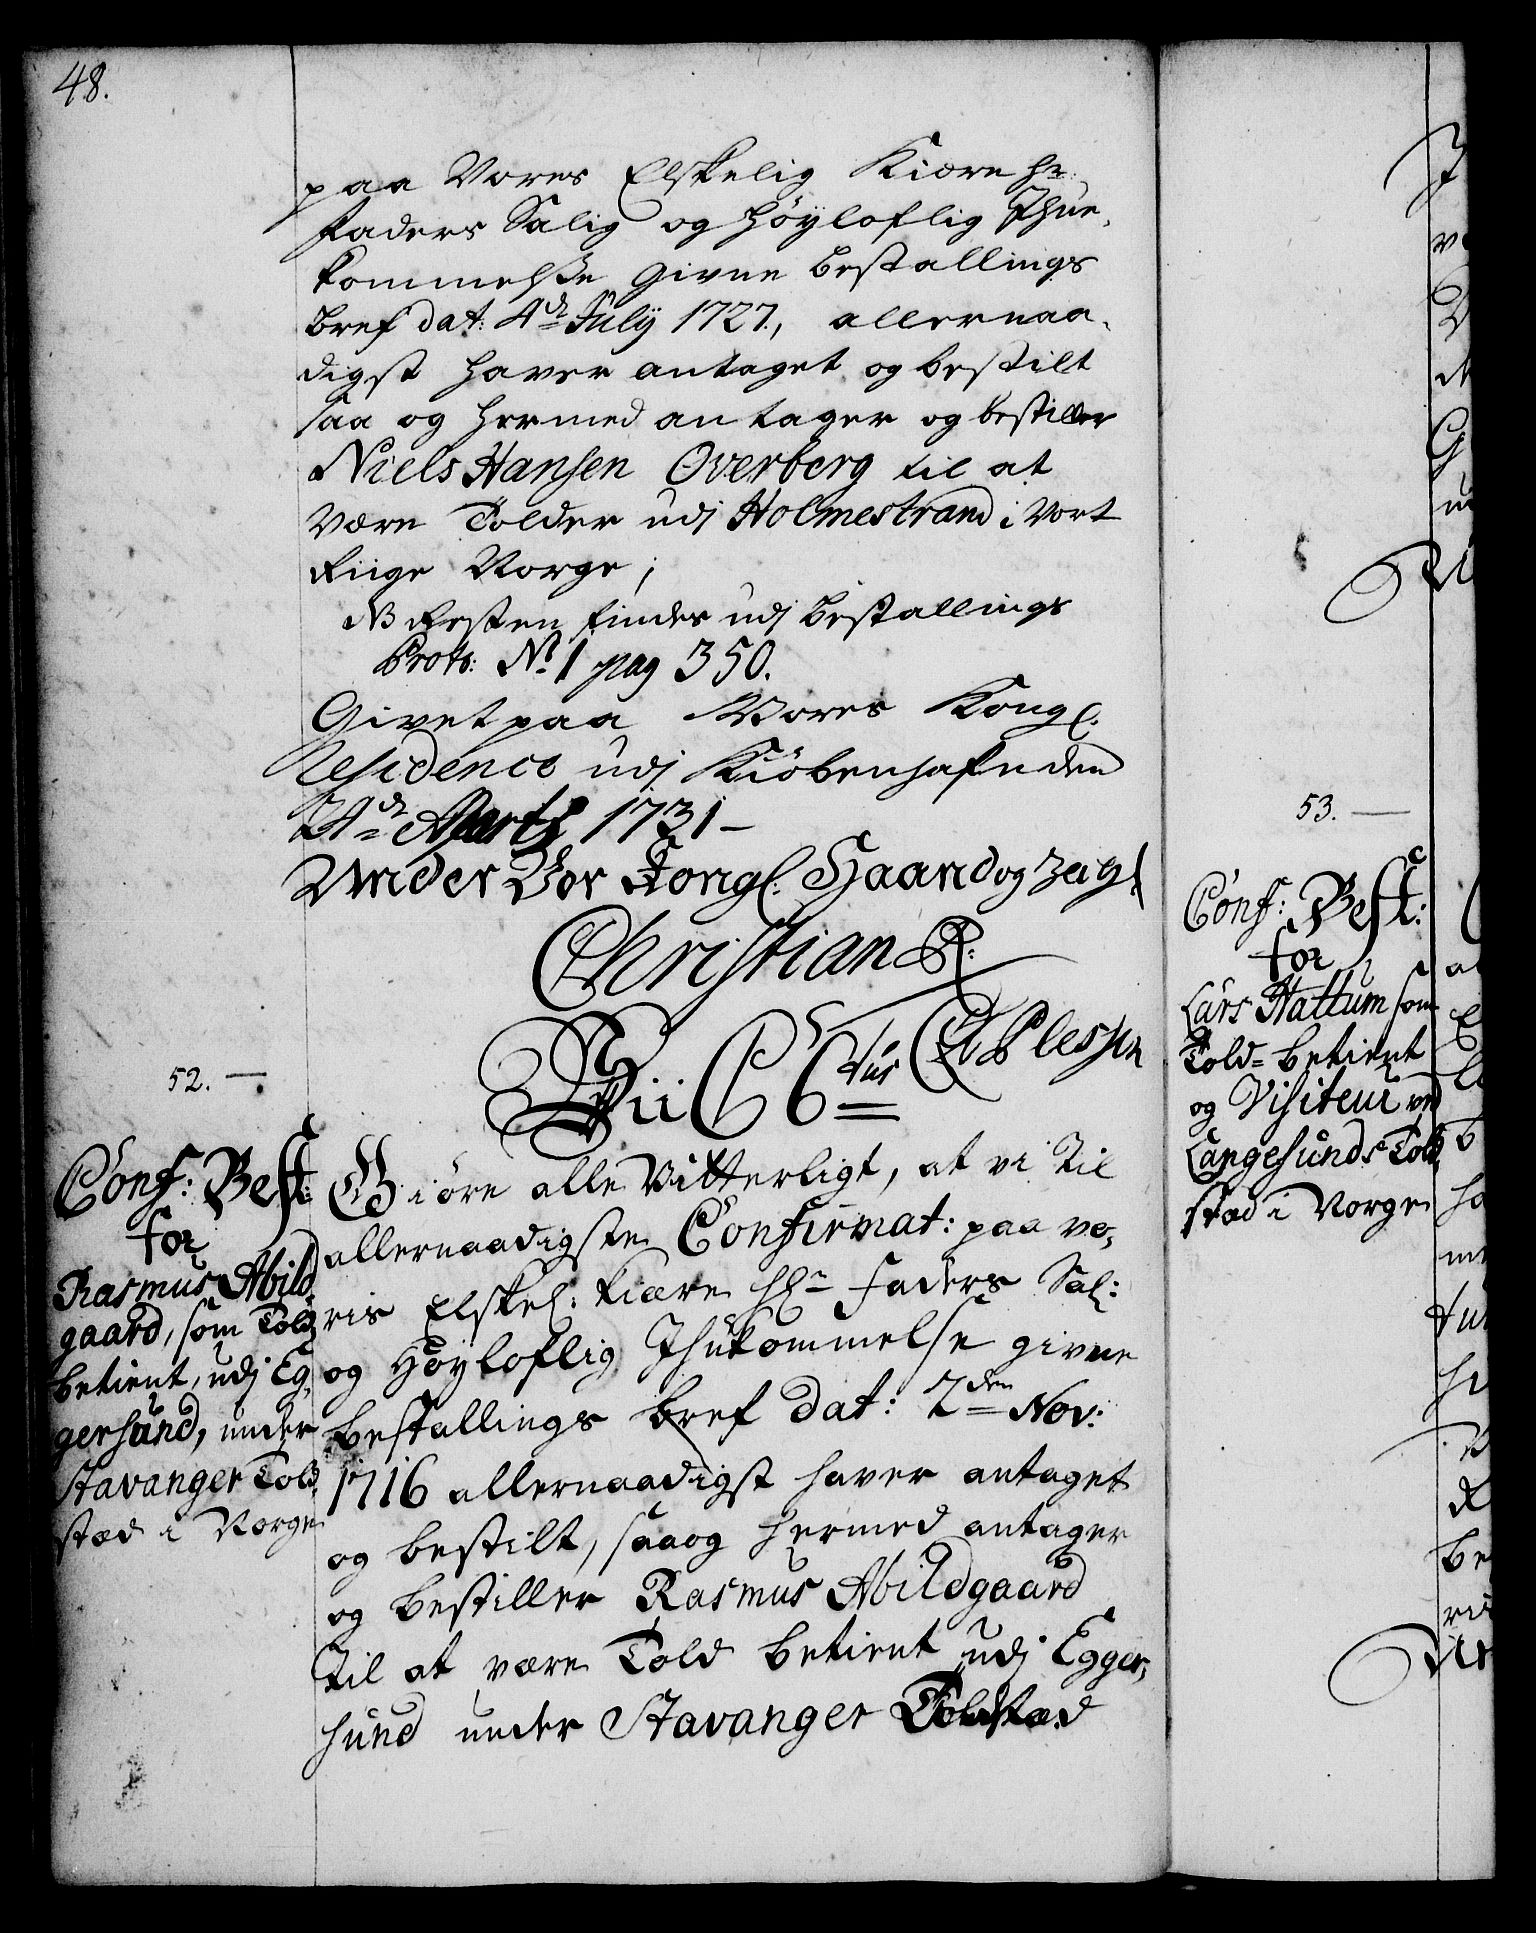 48.
paa Vores Elskelig Kiære Hr:
Faders Salig og höyloflig Ihue,
kommelsse givne bestallings
bref dat: 4de Julÿ 1727, allernaa,
digst haver antaget og bestilt
saa og hermed antager og bestiller
Niels Hansen Overberg til at
være Tolder udj Holmestrand i Vort
Riige Norge;
NB Resten findes udj bestallings
Prot: No 1 pag 350.
Givet paa Vores Kongl.
Residence udj Kiöbenhafn den
Martj 1731 –
Under Vor Kongl. Haand og Zeigl
Christian R:
CA Plessen
52. —
Conf: Best:
for
Rasmus Abild,
gaard, som Told
betient, udj Eg,
gersund, under
Stavanger Told,
stæd i Norge
Vii C 6tus
Giöre alle Vitterligt, at vi til
allernaadigste Confirmat: paa vo,
ris Elskel: kiære Hr Faders Sal:
og Höyloflig Ihukommelse givne
bestallings bref dat: 2den Nov:
1716 allernaadigst haver antaget
og bestilt, saa og hermed antager
og bestiller Rasmus Abildgaard
til at være Told betient udj Egger,
sund under Stavanger Toldstæd
53. —
Conf: Best:
for
Lars Hattum som
Told= betient
og Visiteur ved
Langesunds Told,
stæd i Norge